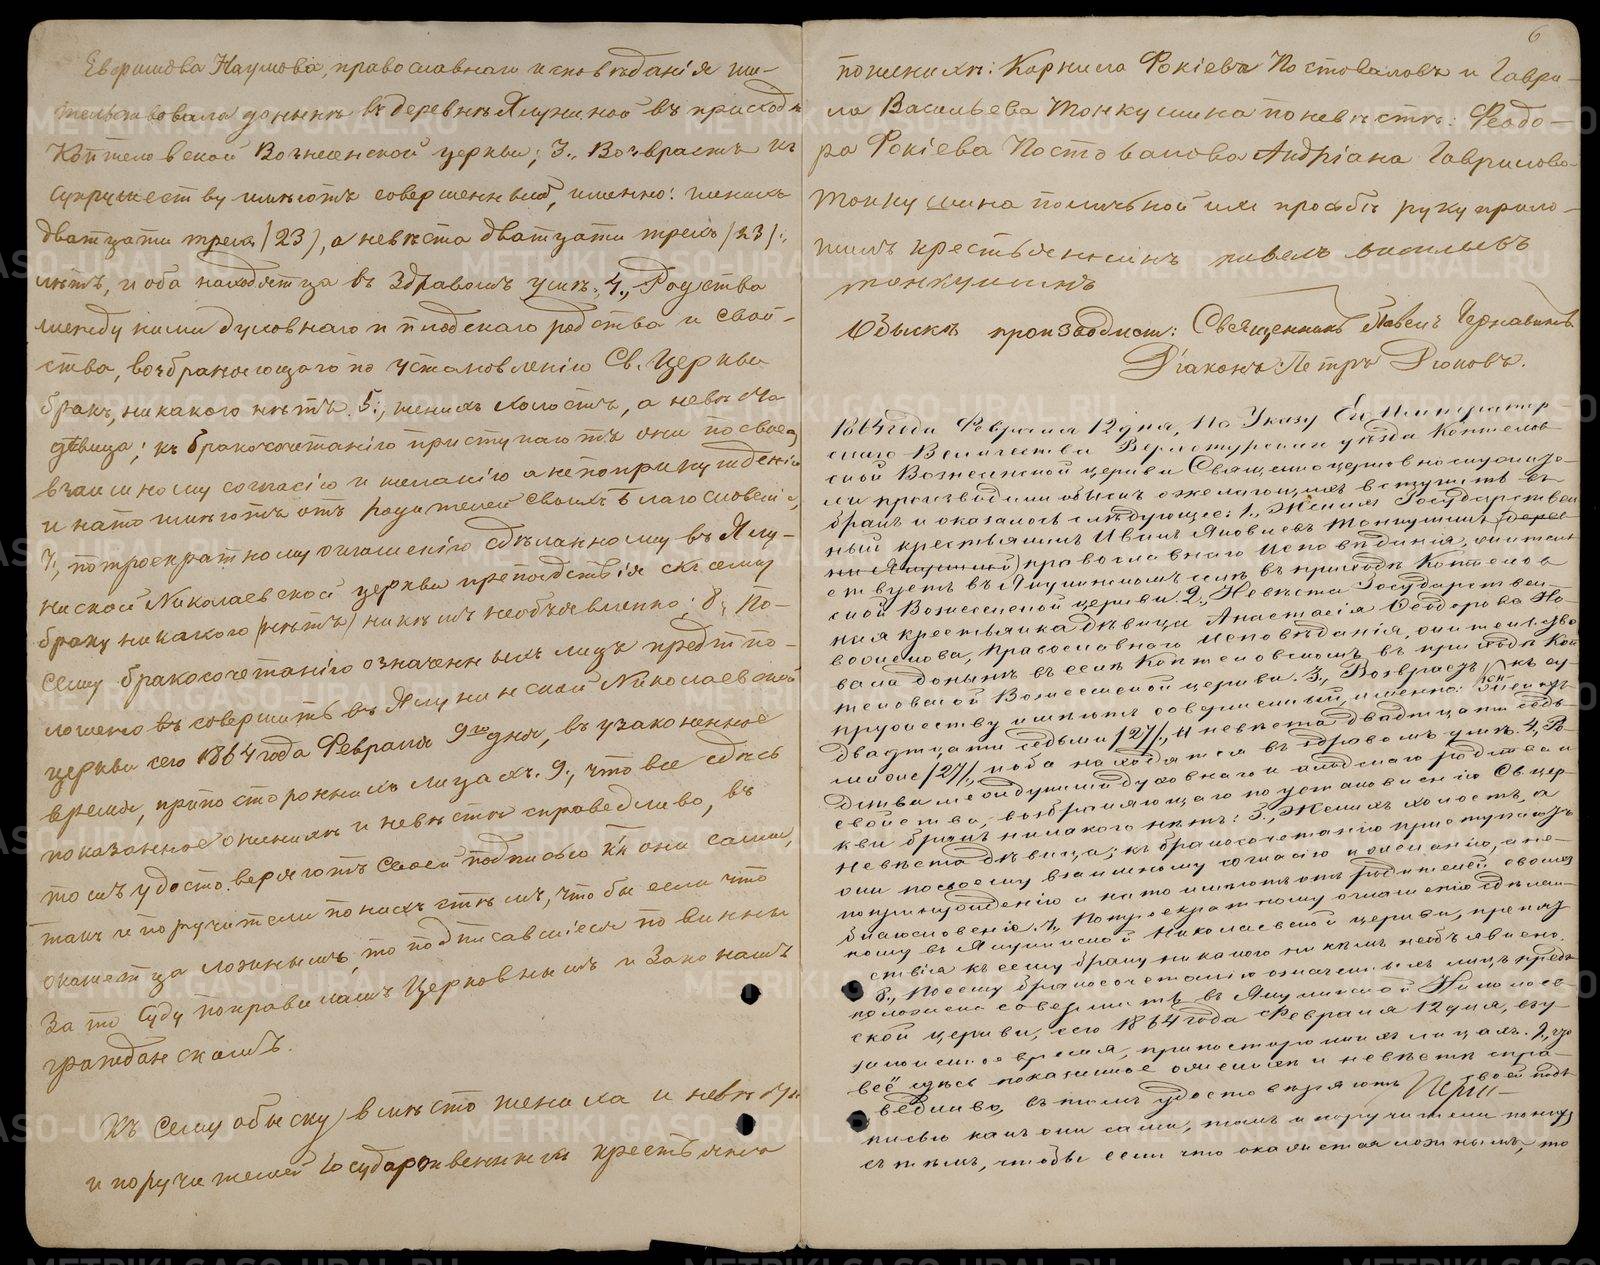 Евфимова Наумова, православнаго исповѣданія жи-
тельствовала донынѣ въ деревнѣ Ялуниной въ приходѣ
Коптеловской Вознесенской церкви; 3., Возврастъ къ
супружеству имѣютъ совершенный, именно: женихъ
дватцати трехъ (23), а невѣста дватцати трехъ (23)
лѣтъ, и оба находятца въ здравомъ умѣ; 4., Родства
между ними духовнаго и плодскаго родства и свой-
ства, возбраняющаго по установленію Св. Церкви
бракъ, никакого нѣтъ. 5., женихъ холостъ, а невѣста
дѣвица; къ бракосочетанію приступаютъ они по своему
взаимному согласію и желанію а не по принужденію
и на то имѣютъ отъ родителей своихъ благословеніе,
7., по троекратному оглашенію сдѣланному въ Ялу-
нинской Николаевской церкви препятствія къ сему
браку никакого (нѣтъ) никѣмъ необъявленно; 8, По-
сему бракосочетанію означенныхъ лицъ предпо-
ложено въ совершить въ Ялунинской Николаевской
церкви сего 1864 года Февраля 9го дня, въ узаконенное
время, при постороннихъ лицахъ. 9., что все здѣсь
показанное о женихѣ и невѣстѣ справедливо, въ
томъ удостоверяютъ своей подписью к҃къ они сами,
такъ и поручители по нихъ стѣмъ, что бы если что
окажетца ложнымъ, то подписавшіеся повинны
за то суду по правиламъ Церковнымъ и Законамъ
гражданскимъ.
Къ сему обыску, вмѣсто жениха и невѣсты
и поручителей Государственныхъ крестьянъ
6
по женихѣ: Корнила Фокіева Постовалова и Гаври-
ла Васильева Тонкушина по невѣстѣ: Федо-
ра Фокіева Постовалова Андріана Гаврилова
Тонкушина по личьной ихъ прозьбѣ руку прило-
жилъ крестьянинъ павелъ васильевъ
тонкушинъ
Обыскъ производили: Священникъ Павелъ Чернавинъ
Діаконъ Петръ Діоновъ.
1864 года Февраля 12 дня, По Указу Ея Император-
скаго Величества Верхотурскаго уѣзда Коптелов-
ской Вознесенской церкви Священноцерковнослужи-
ли производили обыскъ о желающихъ вступить въ
бракъ и оказалось слѣдующее: 1., Женихъ Государствен
ный крестьянинъ Иванъ Яковлевъ Тонкушинъ (дерев
ни Ялуниной) православнаго исповѣданія, житель
ствуетъ въ Ялунинскомъ селѣ въ приходѣ Коптелов
ской Вознесенской церкви. 2., Невѣста Государствен-
ная крестьянка дѣвица Анастасія Феодорова Но-
воселова, Православнаго исповѣданія, жительство
вала донынѣ въ селѣ Коптеловскомъ въ приходѣ Коп
теловской Вознесенской церкви. 3., Возврастъ къ су-
пружеству имѣютъ совершенный, именно: Женихъ
двадцати седьми (27), и невѣста двадцати седь-
ми (27), и оба находятся въ здравомъ умѣ. 4., Ро-
дства между ними духовнаго и плодскаго родства и
свойства, возбраняющаго по установленію Св. цер-
кви бракъ никакого нѣтъ: 5., Женихъ холостъ, а
невѣста дѣвица; къ бракосочетанію приступаютъ
они по своему взаимному согласію и желанію, а не-
по принужденію и на то имѣютъ отъ родителей своихъ
благословеніе. 7., По троекратному оглашенію сдѣлан-
ному въ Ялунинской Николаевской церкви, препят
ствія къ сему браку никакого никѣмъ необъявлено.
8., По сему бракосочетанію означенныхъ лицъ предъ
положено совершить въ Ялунинской Николаев-
ской церкви, сего 1864 года Февраля 12 дня, въ у-
законенное время, при постороннихъ лицахъ. 9, что
всё здѣсь показанное о женихѣ и невѣстѣ спра-
ведливо, въ томъ удостовѣряютъ своей подъ
писью какъ они сами, такъ и поручители по нихъ
съ тѣмъ, чтобы если что окажется ложнымъ, то